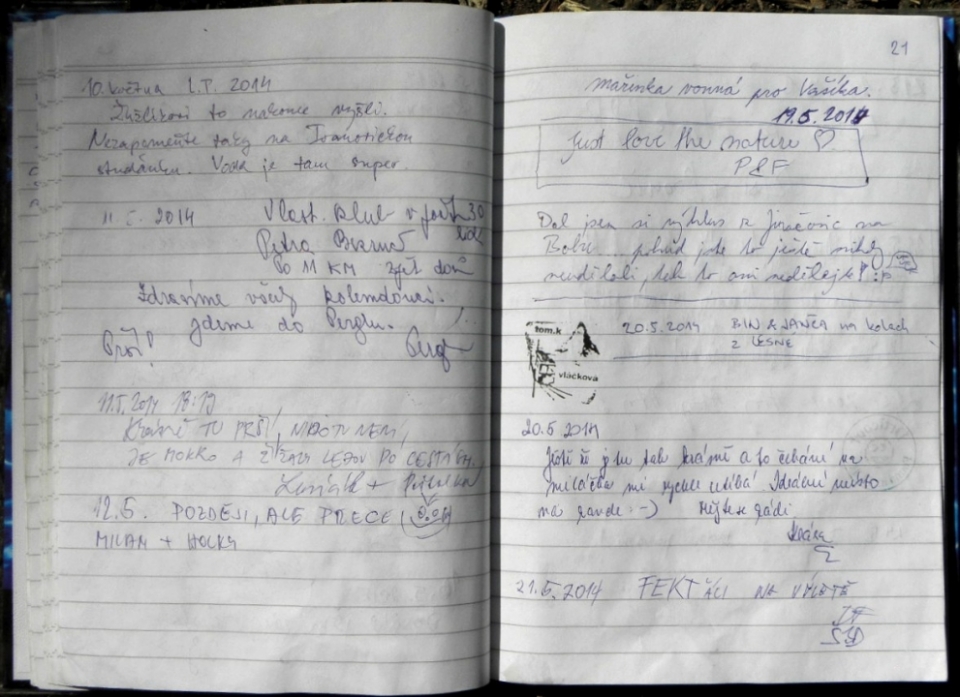 10. května L.P. 2014
to nakonec vyšli.
Nezapomeňte taky na Ivanovickou
studánku. Voda je tam super.
11. 5. 2014 Vlast. klub v 30
Petra Bezruč
Po 11 KM zpět domů
Zdravíme všechny kolemdoucí.
Jdeme do Perglu.
11.5. 2014 18:19
Krásně TU PRŠÍ,
JE MOKRO A ŽÍŽALY LEZOU PO CESTÁCH.
12.5. POZDĚJI, ALE PŘECE,
MILAN + HOLKY
21
mařinka vonná pro Vašíka.
19.5.2014
Just love the nature ♡
P&F
Dal jsem si výklus z Jinačovic na
pokud jste to ještě nikdy
neudělali, tak to ani nedělejte! :p
tom.k
vláčkova
20.5.2014 BIN & JANČA na kolech
z LESNÉ
20.5 2014
Ještě že je tu tak krásně a to čekání na
miláčka mi rychle utíká! Ideální místo
na rande :-) Mějte se rádi
Klára
21.5.2014 FEKŤÁCI NA VÝLETĚ